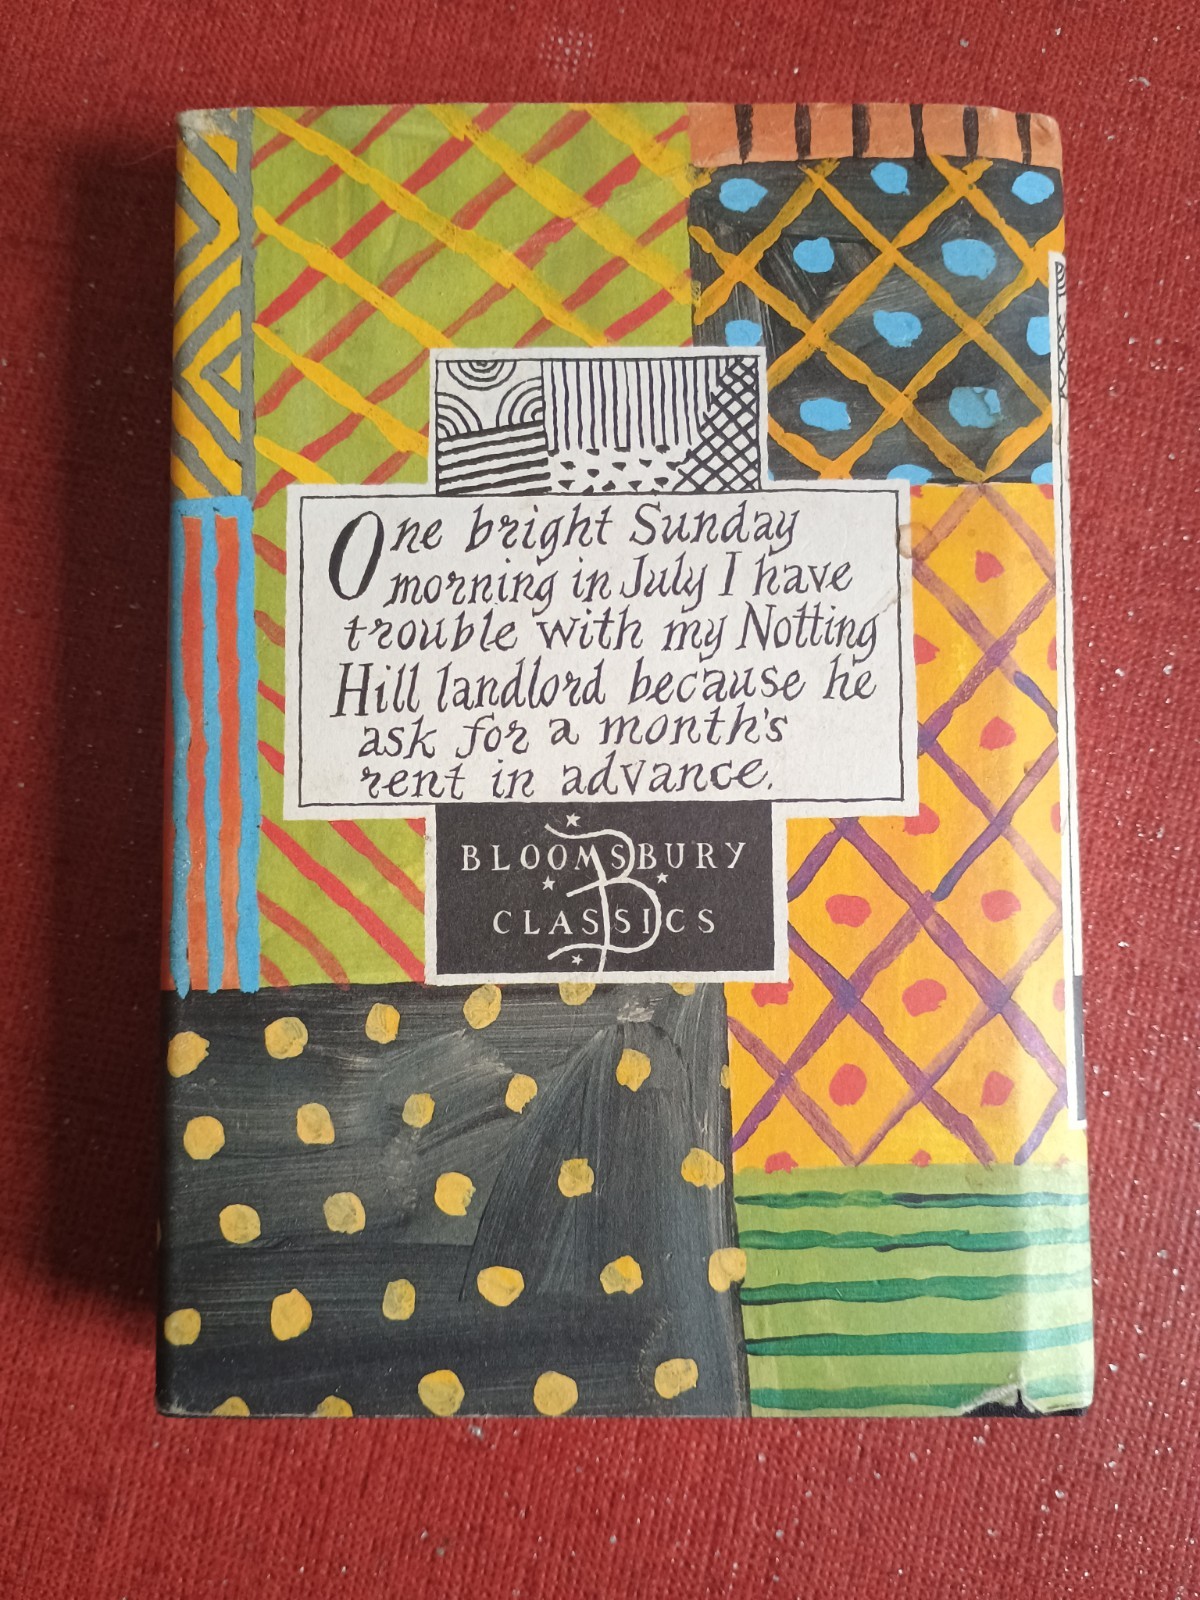 One bright Sunday
morning in July I have
trouble with my Notting
Hill landlord because he
ask for a month's
rent in advance.
BLOOMSBURY
CLASSICS